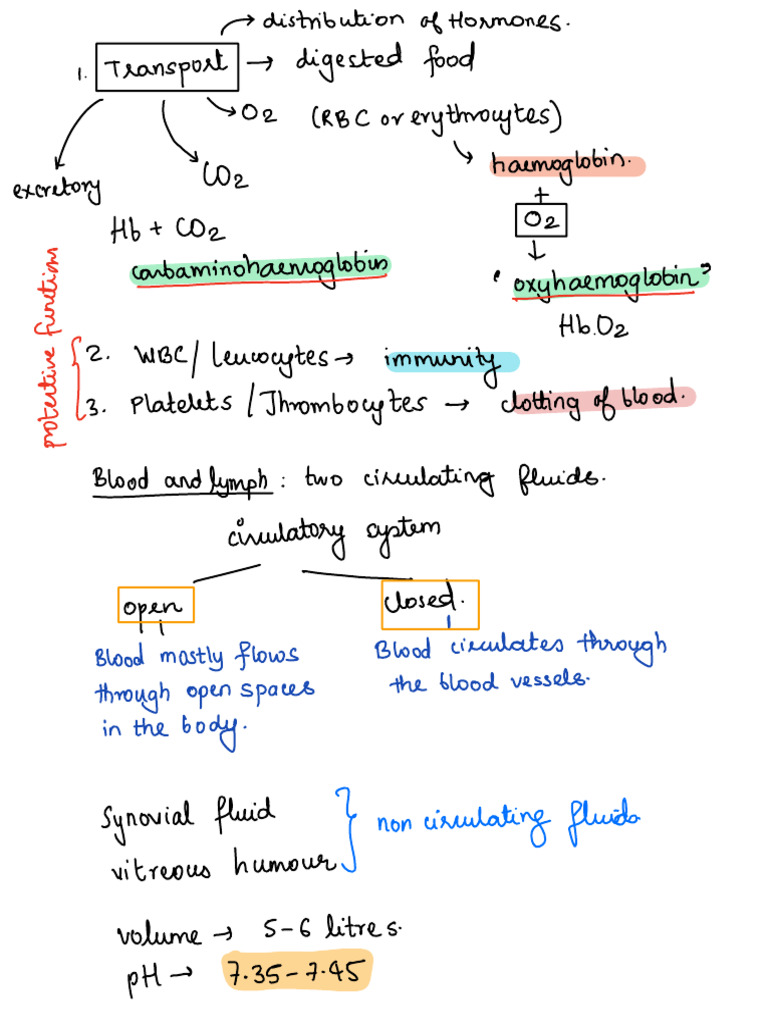 → distribution of Hormones.
1. Transport → digested food
O2 (RBC or erythrocytes)
haemoglobin.
CO2
excretory
+
O2
Hb + CO2
carbaminohaemoglobin
"oxyhaemoglobin"
Hb.O2
protective function
2. WBC/ Leucocytes → immunity
3. Platelets / Thrombocytes → clotting of blood.
Blood and lymph : two circulating fluids.
circulatory system
open
closed.
Blood mostly flows
through open spaces
in the body.
Blood circulates through
the blood vessels.
Synovial fluid
vitreous humour
non circulating fluids
volume → 5-6 litres.
pH → 7.35-7.45